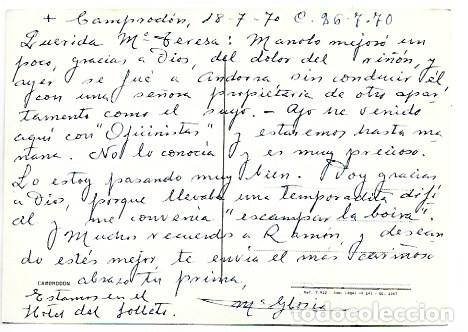 + Camprodón, 18-7-70 C. 26-7-70
Querida Mª Teresa: Manolo mejoró un
poco, gracias a Dios, del dolor del riñón, y
ayer se fué a Andorra sin conducir él
con una señora propietaria de otro apar-
tamento como el suyo. - Ayo he venido
aquí con "Oficinistas" y estaremos hasta ma
ñana. No lo conocía y es muy precioso.
Lo estoy pasando muy bien. Doy gracias
a Dios, porque llevaba una temporadita difí
cil y me convenía "escampar la boira".
Muchos recuerdos a Ramón, y desean
do estés mejor te envía el más cariñoso
abrazo tu prima,
CAMPRODÓN
Estamos en el
Hotel del
Mª Gloria
todocoleccion